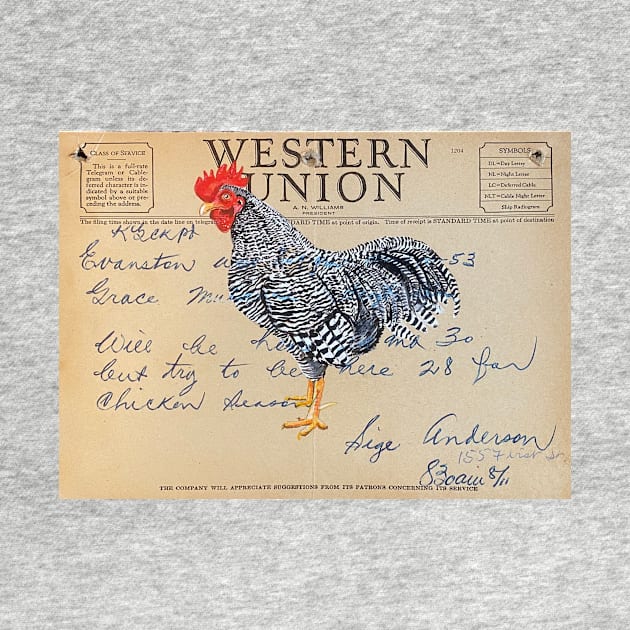 CLASS OF SERVICE
This is a full-rate
Telegram or Cable-
gram unless its de-
ferred character is in-
dicated by a suitable
symbol above or pre-
ceding the address.
WESTERN
UNION
1204
A. N. WILLIAMS
PRESIDENT
SYMBOLS
DL=Day Letter
NL=Night Letter
LC=Deferred Cable
NLT=Cable Night Letter
Ship Radiogram
The filing time shown in the date line on telegrams STANDARD TIME at point of origin. Time of receipt is STANDARD TIME at point of destination
Evanston 53
Grace
Will be 30
but try to be here 28 for
Chicken Season
Sige Anderson
830am 8/11
THE COMPANY WILL APPRECIATE SUGGESTIONS FROM ITS PATRONS CONCERNING ITS SERVICE